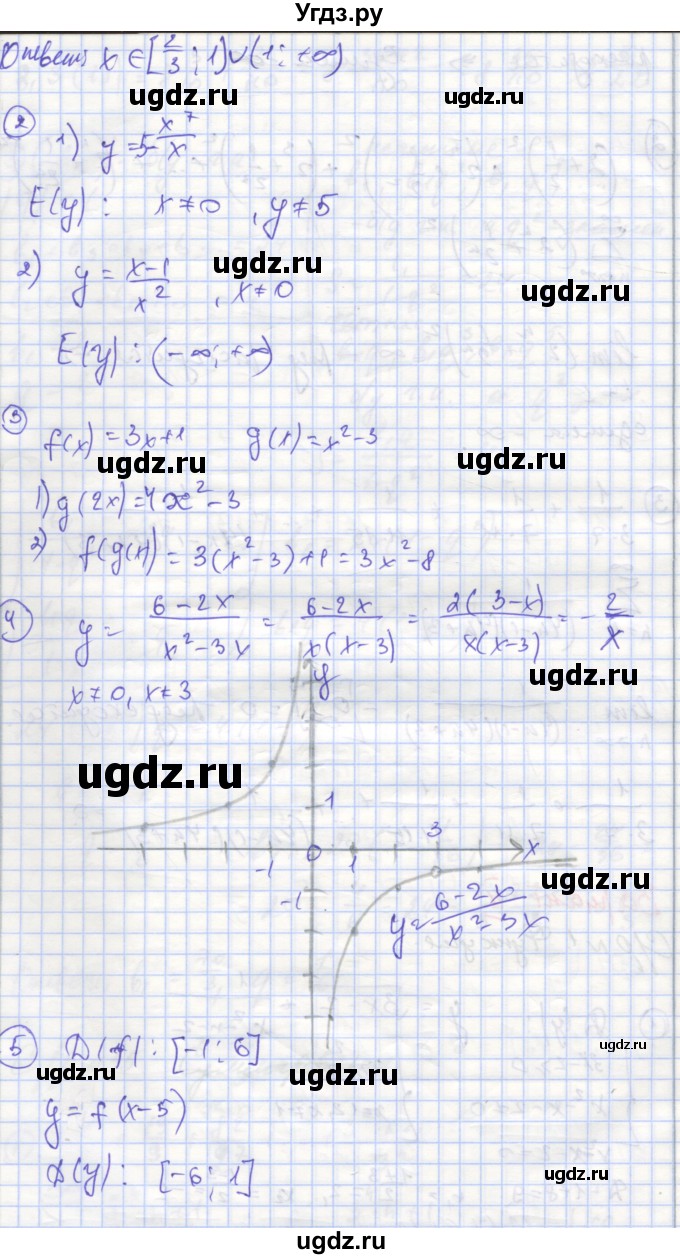 Угдз.ру
Ответ: x ∈ [2/3 ; 1) ∪ (1 ; +∞)
ugdz.ru ugdz.ru
② 1) y = 5 - x⁷/x
E(y) : x ≠ 0 , y ≠ 5
ugdz.ru
2) y = (x-1)/x² , x ≠ 0
ugdz.ru
E(y) : (-∞; +∞)
③ f(x) = 3x+1 g(x) = x²-3
ugdz.ru ugdz.ru
1) g(2x) = 4x² - 3
2) f(g(x)) = 3(x²-3)+1 = 3x²-8
④ y = (6-2x)/(x²-3x) = (6-2x)/(x(x-3)) = 2(3-x)/(x(x-3)) = -2/x
ugdz.ru
x ≠ 0, x ≠ 3
y
ugdz.ru
1
3
x
-1 0 1
ugdz.ru
-1
y = (6-2x)/(x²-3x)
⑤ D(f) : [-1 ; 6]
ugdz.ru ugdz.ru ugdz.ru
y = f(x-5)
D(y) : [-6 ; 1]
ugdz.ru
ugdz.ru